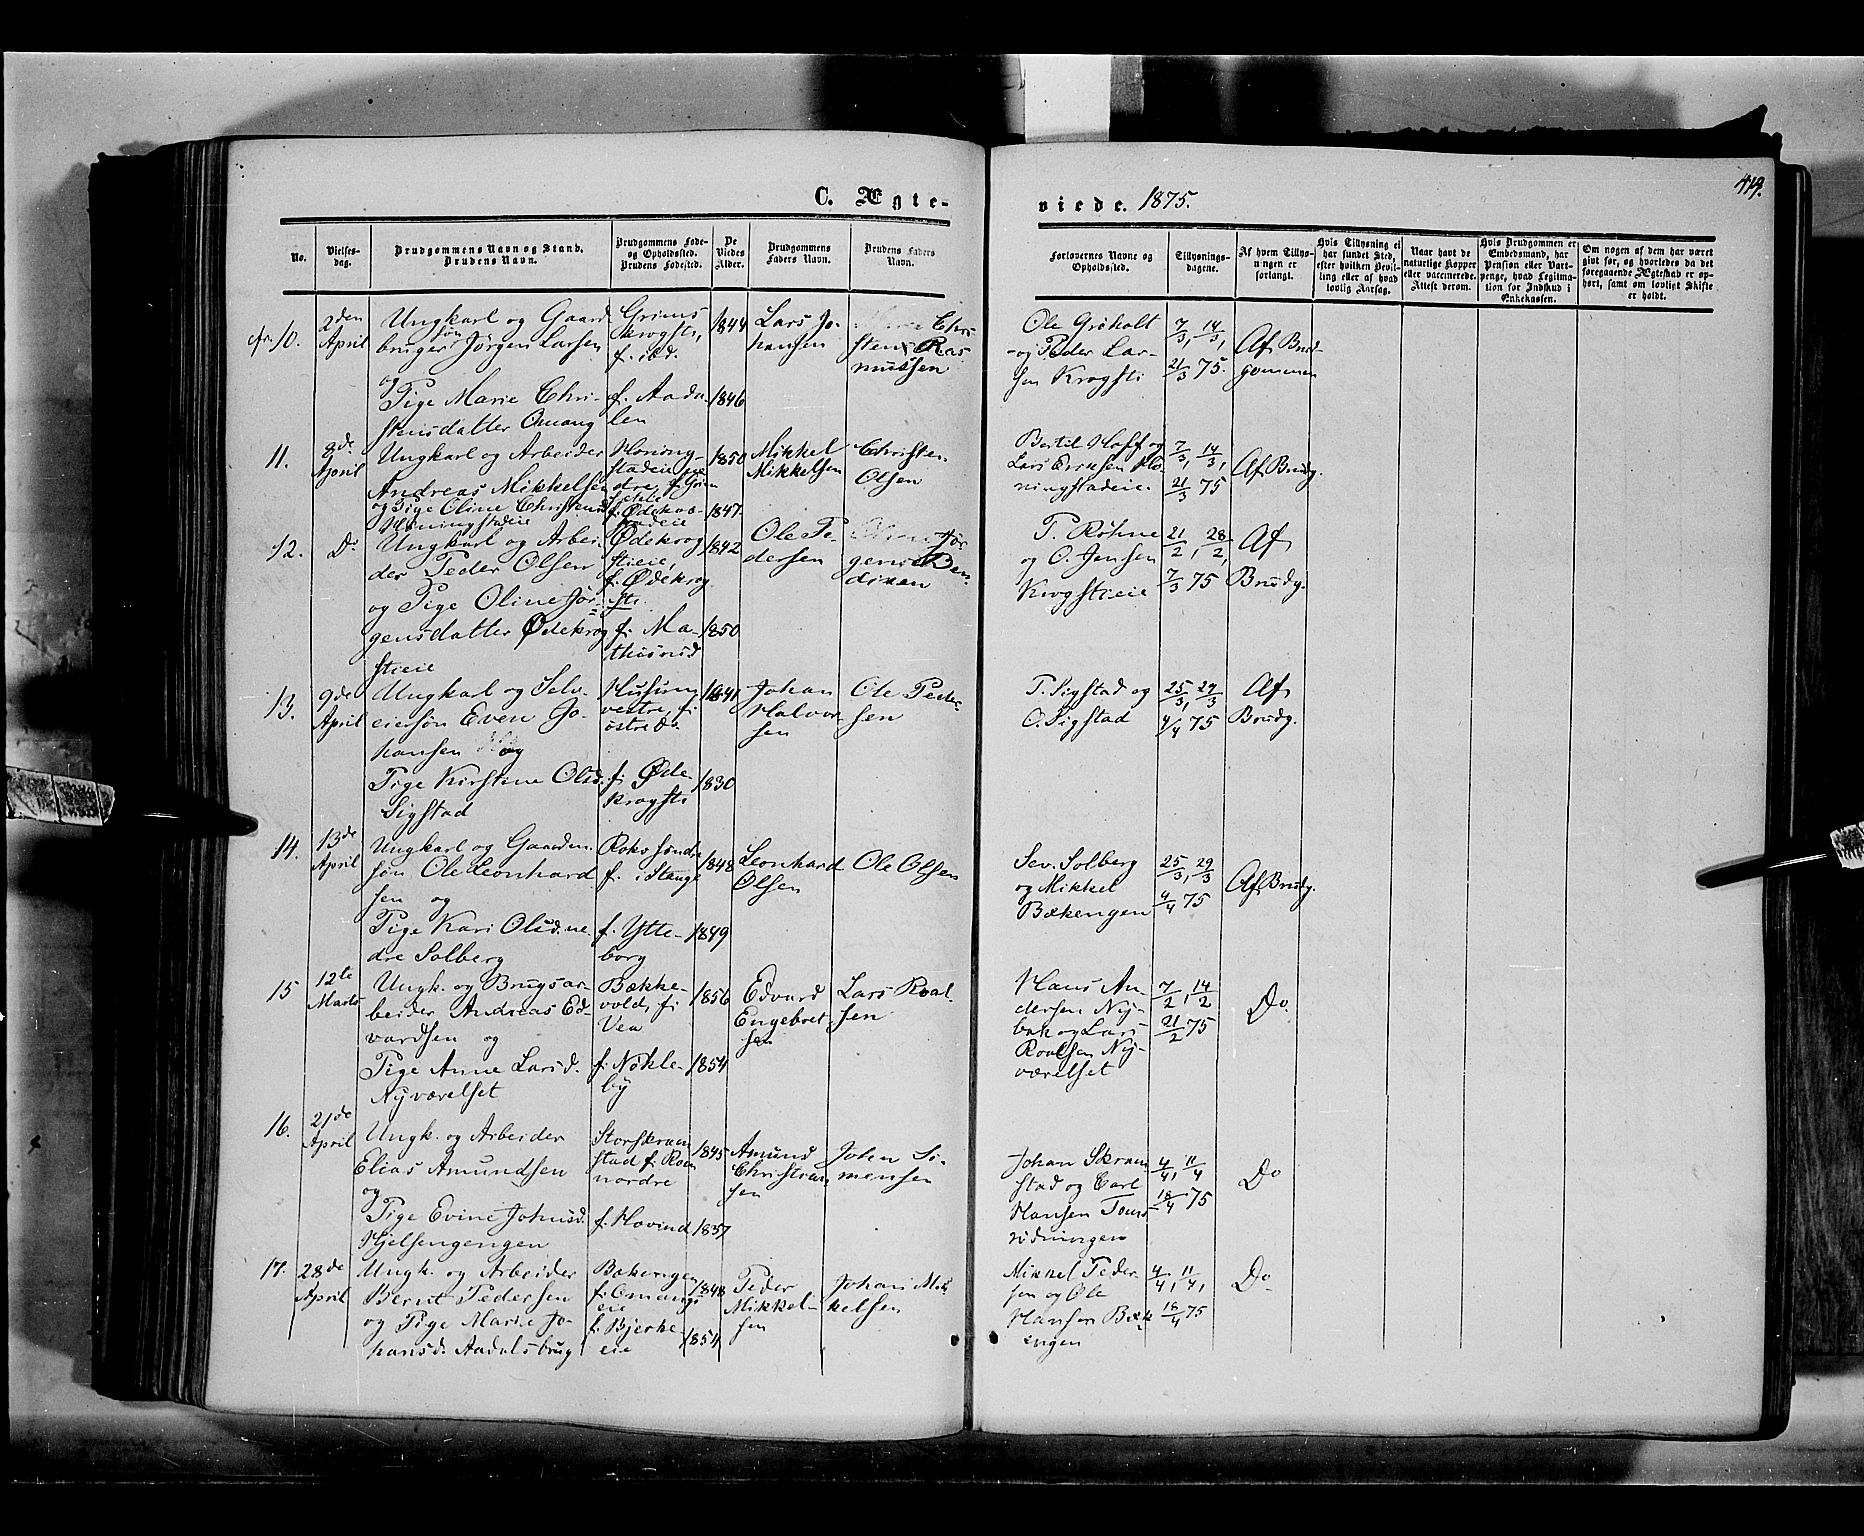 419.
C. Ægte-
viede. 1875.
No.
Vielses-
dag.
Brudgommens Navn og Stand.
Brudens Navn.
Brudgommens Føde-
og Opholdssted.
Brudens Fødested.
De
Viedes
Alder.
Brudgommens
Faders Navn.
Brudens Faders
Navn.
Forlovernes Navne og
Opholdssted.
Tillysnings-
dagene.
Af hvem Tillys-
ningen er
forlangt.
Hvis Tillysning ei
har fundet Sted,
efter hvilken Bevil-
ling eller af hvad
lovlig Aarsag.
Naar havt de
naturlige Kopper
eller vaccinerede.
Attest derom.
Hvis Brudgommen er
Embedsmand, har
Pension eller Vart-
penge, hvad Legitima-
tion for Indskud i
Enkekassen.
Om nogen af dem har været
gift før, og hvorledes da det
foregaaende Ægteskab er op-
hørt, samt om lovligt Skifte
er holdt.
10.
2den
April
Ungkarl og Gaard
bruger søn Jørgen Larsen
og
Pige Marie Chri-
stensdatter Omang
Grims
Krogsti,
f. ibd.
f. Aada-
len
1844
1846
Lars Jo-
hansen
Chri-
sten Ras
mussen
Ole Grøholt
og Peder Lar-
sen Krogsti
7/3, 14/3,
21/3 75.
Af Brud-
gommen
11.
8de
April
Ungkarl og Arbeider
Andreas Mikkelsen
og Pige Oline Christensd
Honingstadeie
Honing-
stadeie
1850
1847
Mikkel
Mikkelsen
Christen
Olsen
Bertil Hoff og
Lars Eriksen Ho-
ningstadeie
7/3, 14/3,
21/3 75
Af Brudg.
12.
Do
Ungkarl og Arbei-
der Peder Olsen
og Pige Oline Jør-
gensdatter Ødekrog
stieie
Ødekrog
stieie,
f. Ødekrog
sti.
f. Ma-
thisrud
1842
1850
Ole Pe-
dersen
Jør
gen Ben
dixen
P. Røhne
og O. Jensen
Krogstieie
21/2, 28/2,
7/3 75
Af
Brudg.
13.
9de
April
Ungkarl og Selv-
eiersøn Even Jo-
hansen og
Pige Kirstine Olsd.
Sigstad
Husum
vestre, f.
østre do.
f. Øde-
krogsti
1841
1830
Johan
Halvor
sen
Ole Peder
sen
P. Sigstad og
O. Sigstad
25/3, 29/3
4/4 75
Af
Brudg.
14.
13de
April
Ungkarl og Gaardm.
søn Ole Leonhard
sen og
Pige Kari Olsd. ne-
dre Solberg
Roko søndre
f. i Stange
f. Ytte-
borg
1848
1849
Leonhard
Olsen
Ole Olsen
Sev. Solberg
og Mikkel
Bækengen
25/3, 29/3
4/4 75
Af Brudg.
15
12te
Marts
Ungk. og Brugsar-
beider Andreas Ed-
vardsen og
Pige Anne Larsd.
Nyværelset
Bække-
vold, f.
Vea
f. Nøkle-
by
1856
1854
Edvard
Engebret
sen
Lars Roal-
sen
Hans An
dersen Ny-
bak og Lars
Roalsen Ny-
værelset
7/2, 14/2
21/2 75
Do
16.
21de
April
Ungk. og Arbeider
Elias Amundsen
og
Pige Evine Johnsd.
Hjelsengengen
Storskram
stad f. Roen
nordre
f. Hovind
1845
1857
Amund
Christian
sen
John Si-
mensen
Johan Skram
stad og Carl
Hansen
4/4, 11/4
18/4 75
Do
17.
28de
April
Ungk. og Arbeider
Bernt Pedersen
og Pige Marie Jo-
hansd. Aadalsbrug
Bækengen
f. Omangs
eie
f. Bjerke-
eie
1848
1854
Peder
Mikkel-
sen
Johan Mik
kelsen
Mikkel Peder
sen og Ole
Hansen Bæk
engen
4/4, 11/4,
18/4 75
Do